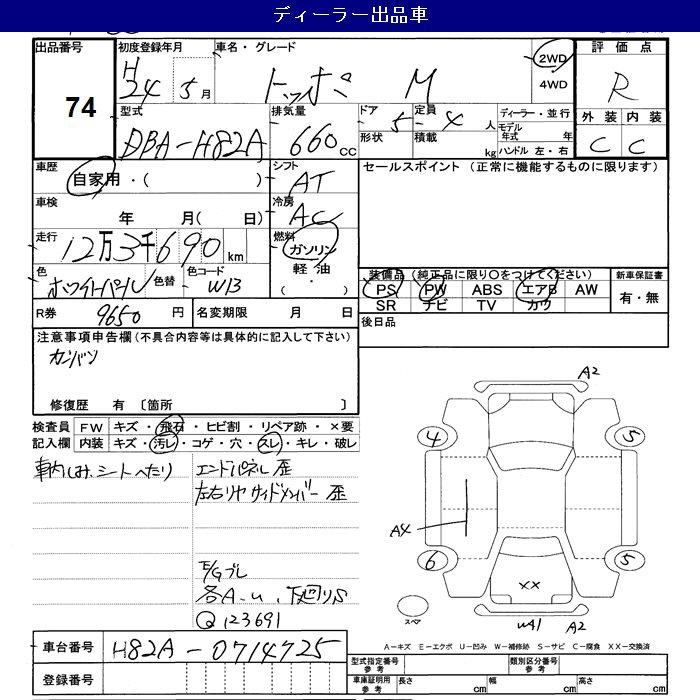 ディーラー出品車
出品番号
74
初度登録年月
H24 5月
車名・グレード
トッポ M
2WD
4WD
評価点
R
外装 内装
C C
型式
DBA-H82A
排気量
660cc
ドア 5
形状
定員 4人
積載 kg
ディーラー・並行
モデル年式 年
ハンドル 左・右
車歴
自家用・( )
シフト
AT
セールスポイント (正常に機能するものに限ります)
車検
年 月( 日)
冷房
AC
走行
12万3千690km
燃料
ガソリン
軽油
( ・ )
色
ホワイトパール
色替
色コード
W13
装備品 (純正品に限り〇をつけてください)
PS PW ABS エアB AW
SR ナビ TV カワ
新車保証書
有・無
R券 9650円
名変期限 月 日
後日品
注意事項申告欄 (不具合内容等は具体的に記入して下さい)
カンバン
修復歴 有 〔箇所 〕
検査員記入欄
FW キズ・飛石・ヒビ割・リペア跡・×要
内装 キズ・汚レ・コゲ・穴・スレ・キレ・破レ
車内しみ、シートへたり
エンドパネル 歪
左右リヤサイドメンバー 歪
E/Gブレ
各A.U、下廻りS
Q123691
A2
4
5
A4
6
5
XX
スペア
WA1
A2
A-キズ E-エクボ U-凹み W-補修跡 S-サビ C-腐食 XX-交換済
車台番号
H82A-0714725
登録番号
型式指定番号 参考
類別区分番号 参考
車庫証明用 参考
長さ cm
幅 cm
高さ cm